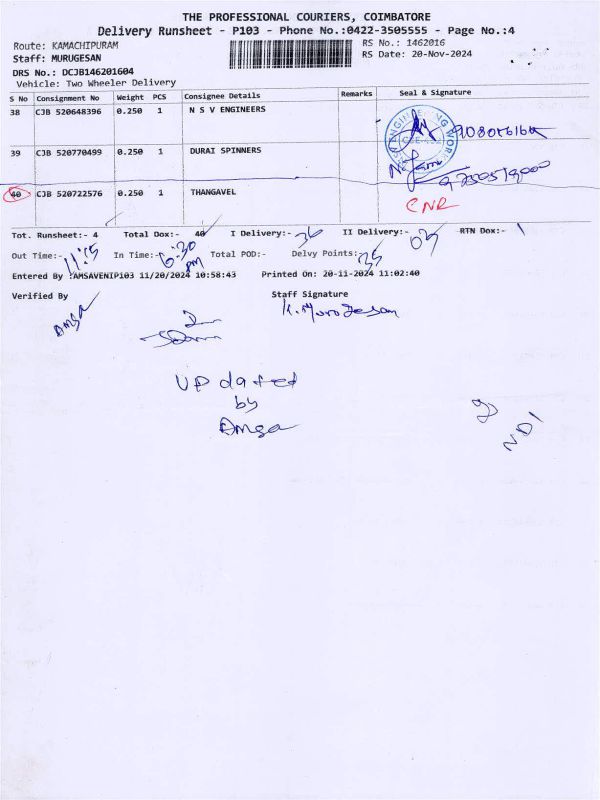 THE PROFESSIONAL COURIERS, COIMBATORE
Delivery Runsheet - P103 - Phone No.:0422-3505555 - Page No.:4
Route: KAMACHIPURAM
RS No.: 1462016
Staff: MURUGESAN
RS Date: 20-Nov-2024
DRS No.: DCJB146201604
Vehicle: Two Wheeler Delivery
S No Consignment No Weight PCS Consignee Details Remarks Seal & Signature
38 CJB 520648396 0.250 1 N S V ENGINEERS
39 CJB 520770499 0.250 1 DURAI SPINNERS
40 CJB 520722576 0.250 1 THANGAVEL
CNR
Tot. Runsheet:- 4 Total Dox:- 40 I Delivery:- 36 II Delivery:- 03 RTN Dox:- 1
Out Time:- 11:15 In Time:- 6:30 pm Total POD:- Delvy Points:- 35
Entered By :AMSAVENIP103 11/20/2024 10:58:43 Printed On: 20-11-2024 11:02:40
Verified By Staff Signature
Amsa K. Murugesan
UP dated
by
Amsa
NDI